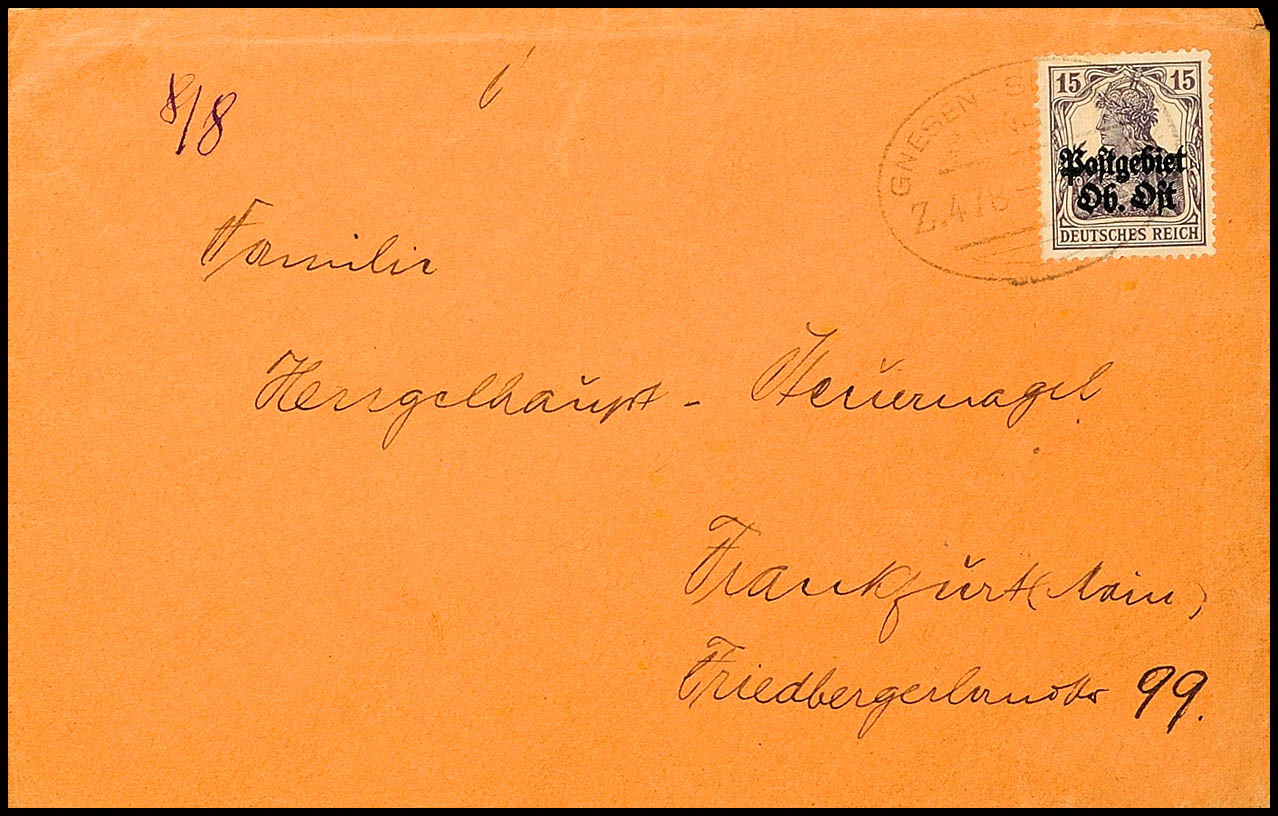 8/8
GNESEN - S
Z. 4
15 15
Postgebiet
Ob. Ost
DEUTSCHES REICH
Familie
Hengelhaupt - Steuernagel
Frankfurt (Main)
Friedbergerlandstr 99.